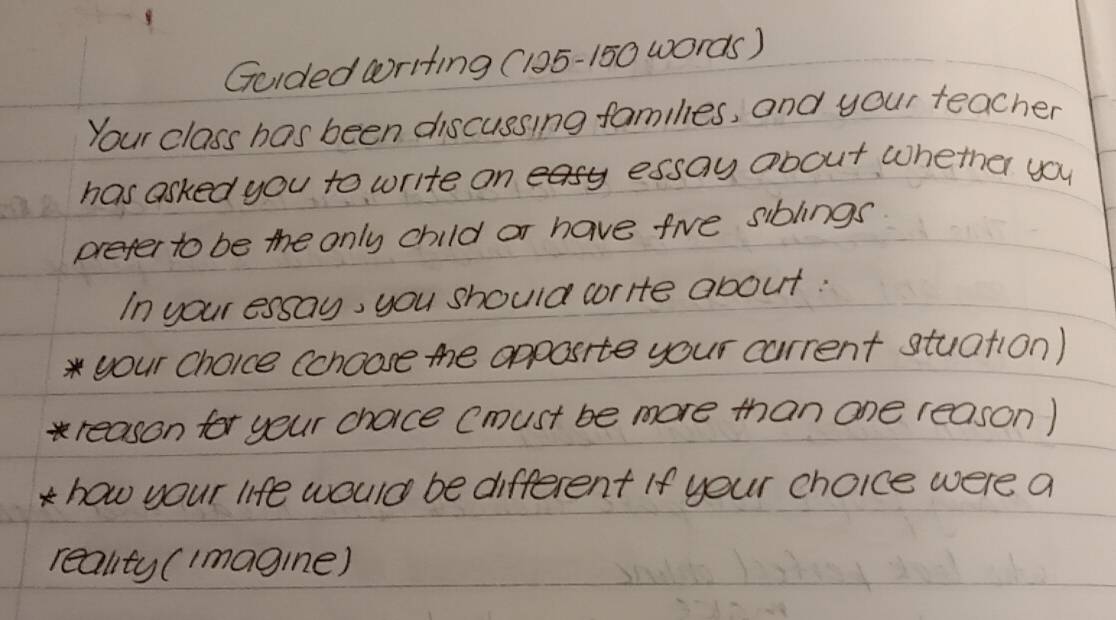 Guided Writing (125-150 words)
Your class has been discussing families, and your teacher
has asked you to write an easy essay about whether you
prefer to be the only child or have five siblings.
In your essay, you should write about :
* your choice (choose the opposite your current situation)
* reason for your choice (must be more than one reason)
* how your life would be different if your choice were a
reality (imagine)